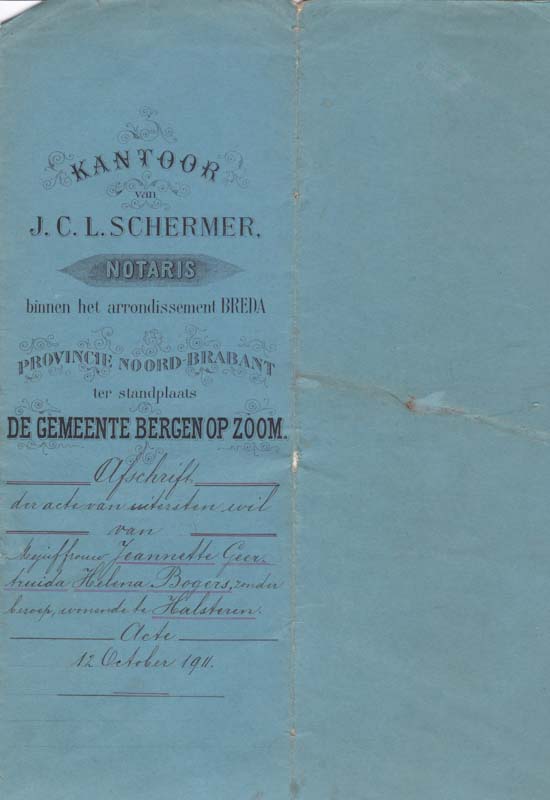 KANTOOR
van
J. C. L. SCHERMER,
NOTARIS
binnen het arrondissement BREDA
PROVINCIE NOORD-BRABANT
ter standplaats
DE GEMEENTE BERGEN OP ZOOM.
Afschrift
der acte van uitersten wil
van
Mejuffrouw Jeannette Geer-
truida Helena Bogers, zonder
beroep, wonende te Halsteren.
Acte
12 October 1911.